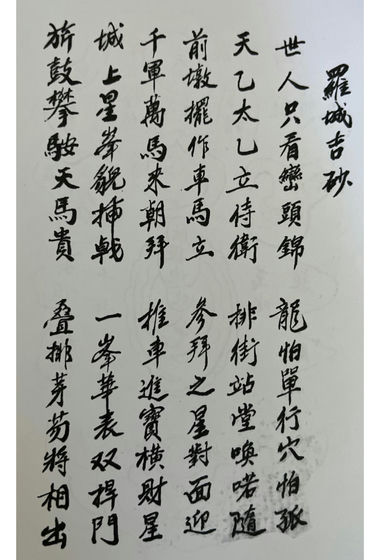 羅城吉砂
世人只看巒頭錦 龍怕單行穴怕孤
天乙太乙立侍衛 排街站堂喚喏隨
前墩擺作車馬立 參拜之星對面迎
千軍萬馬來朝拜 推車進寶橫財星
城上星峯貌插戟 一峯華表双桿門
旂鼓攀鞍天馬貴 叠排芽笏將相出